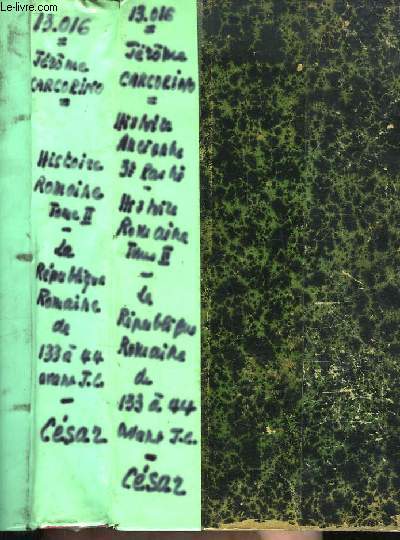 Le-livre.com
13.016
=
Jérôme
CARCOPINO
=
Histoire
Romaine
Tome II
-
La
République
Romaine
de
133 à 44
avant J.C.
-
César
13.016
=
Jérôme
CARCOPINO
=
Histoire
Ancienne
3e Partie
-
Histoire
Romaine
Tome II
-
La
République
Romaine
de
133 à 44
avant J.C.
-
César